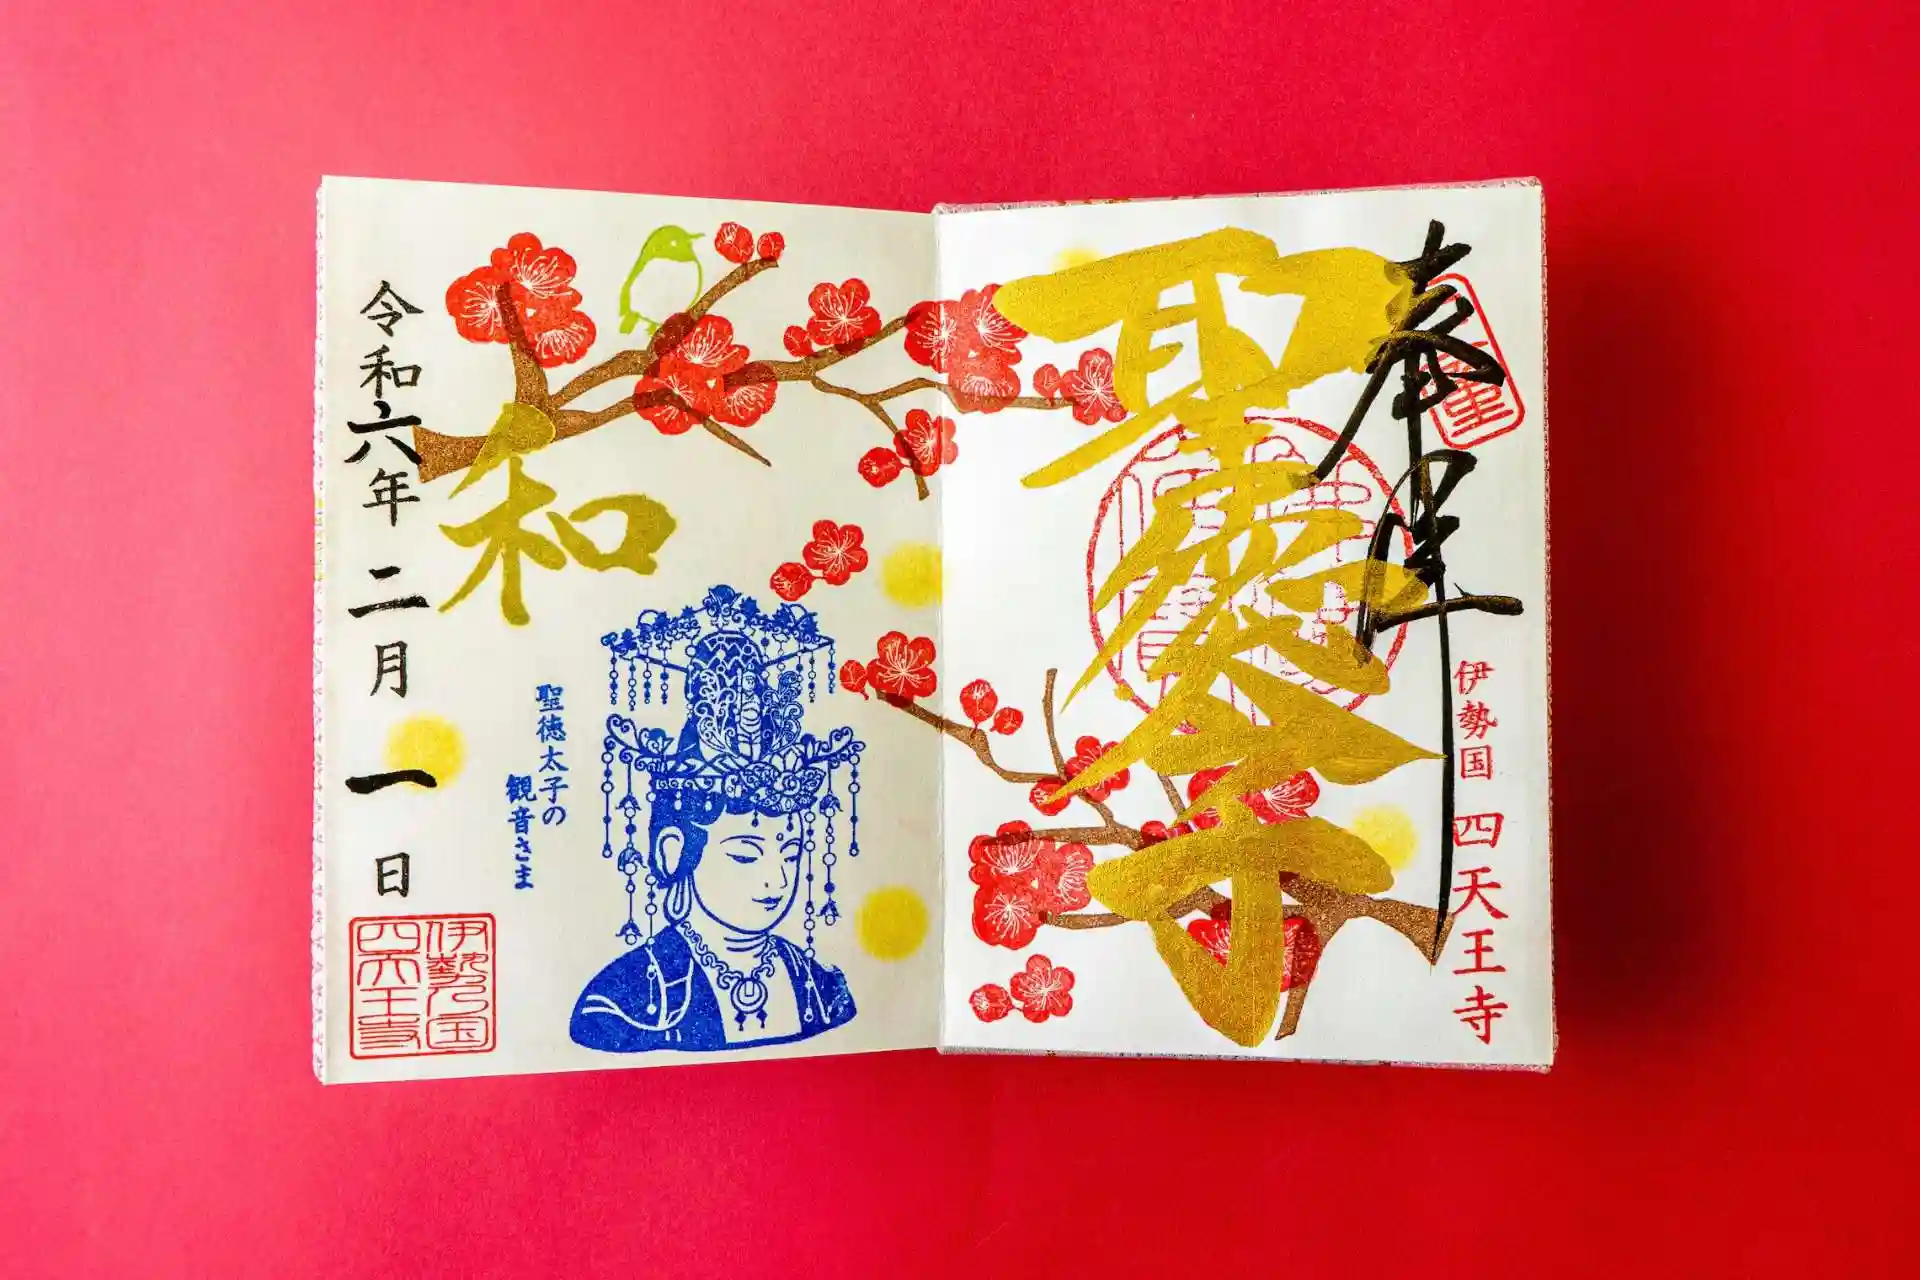 奉拝
伊勢国 四天王寺
聖徳太子
和
聖徳太子の
観音さま
令和六年二月一日
伊勢乃国
四天王寺